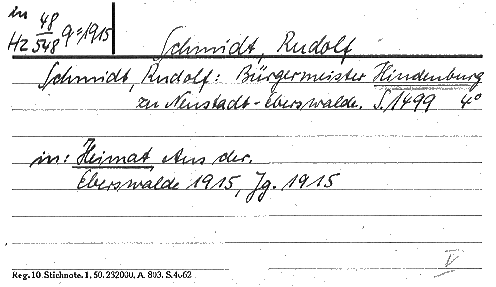 in
48
HZ 548 q=1915
Schmidt, Rudolf
Schmidt, Rudolf: Bürgermeister Hindenburg
zu Neustadt-Eberswalde. S. 1499 4°
in: Heimat, Aus der.
Eberswalde 1915, Jg. 1915
V
Reg. 10 Stichnote. 1, 50. 232000, A. 803. S. 4.62